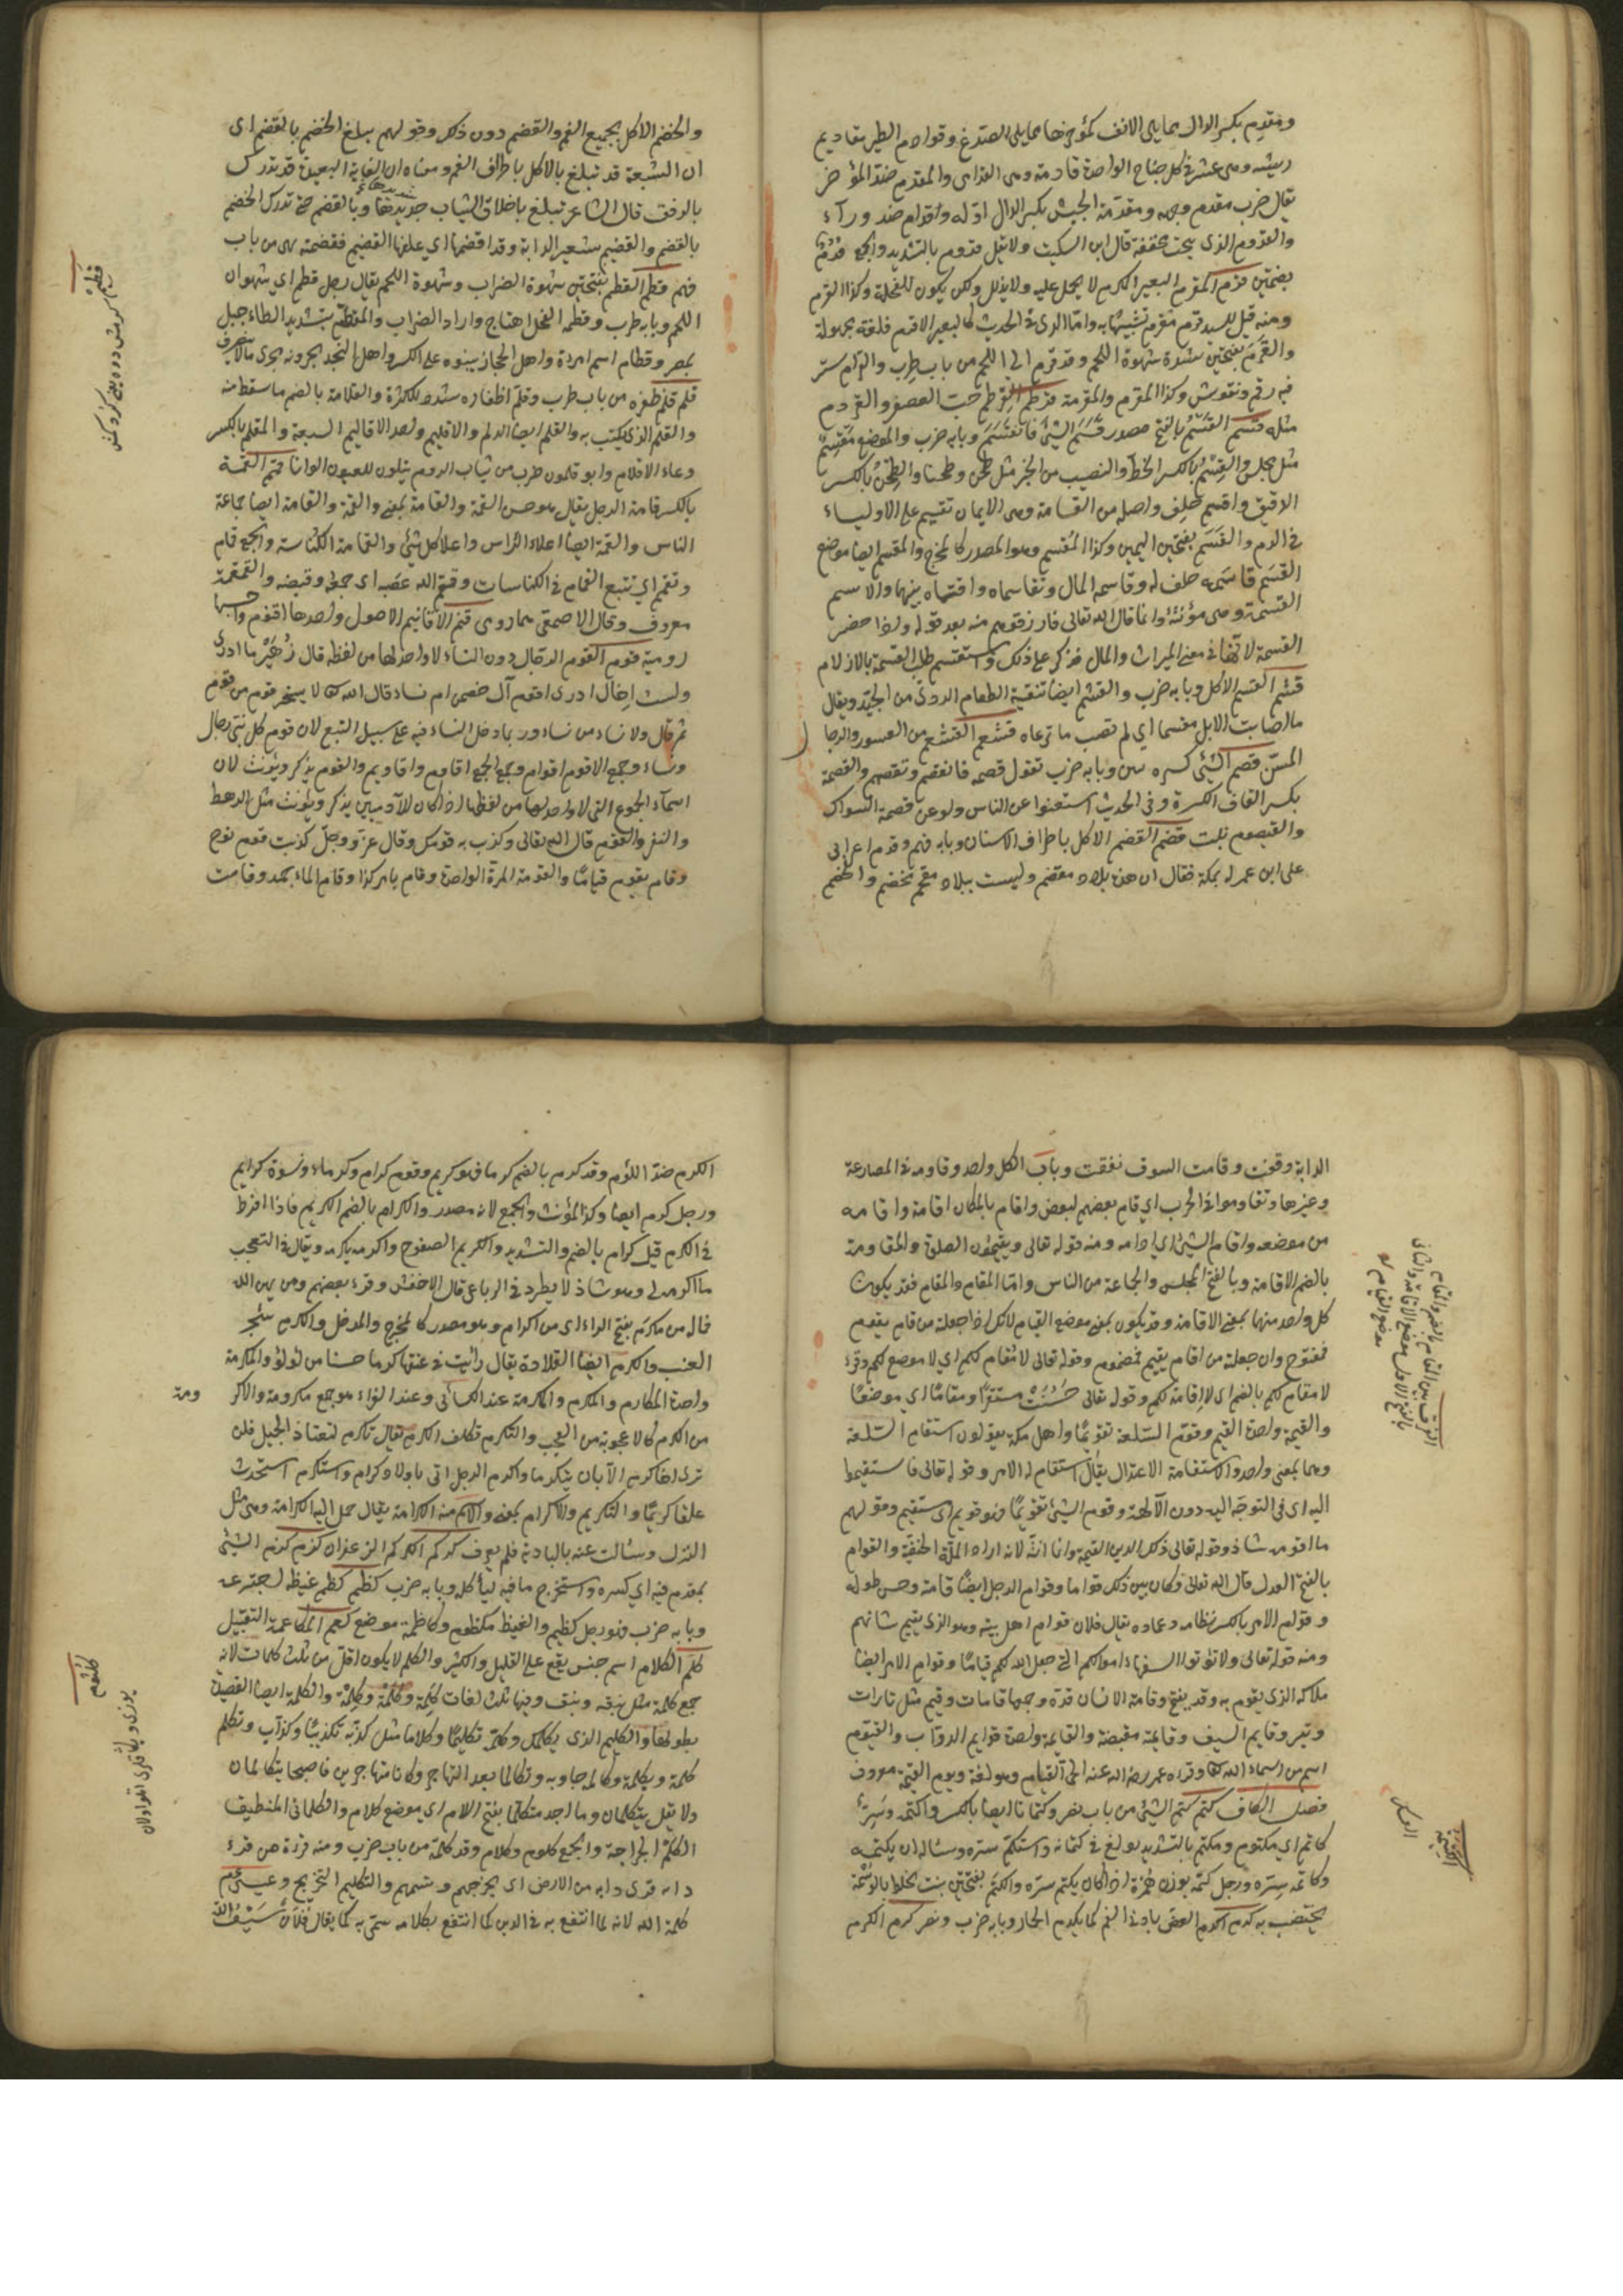 ومقدِم بكسر الدال مما يلى الانف كمؤخرها مما يلى الصدغ وقوادم الطير مقاديم
ريشه وهى عشر فى كل جناح الواحدة قادمة وهى القدامى والمقدم ضد المؤخر
يقال ضرب مقدم وجهه ومقدمة الجيش بكسر الدال اوله وقدام ضد وراء
والقدوم الذى ينحت مخففة قال ابن السكيت ولا تقل قدوم بالتشديد والجمع قُدُمٌ
بضمتين قرم المقرم البعير المكرم لا يحمل عليه ولا يذلل ولكن يكون للفحلة وكذا القرم
ومنه قيل للسيد قرم مقرم تشبيهًا به واما الذى فى الحديث كالبعير الاقرم فلغة مجهولة
والقَرَمُ بفتحتين شدة شهوة اللحم وقد قرم الى اللحم من باب طرب والقرام ستر
فيه رقم ونقوش وكذا المقرم والمقرمة قرطم القرطم حب العصفر والقردم
مثله قسم القَسْمُ بالفتح مصدر قَسَمَ الشئ فانقسم وبابه ضرب والموضع مَقسِمٌ
مثل مجلس والقِسْمُ بالكسر الحظ والنصيب من الخير مثل طحن وطحنا والطِحْنُ بالكسر
الدقيق واقسم حلف واصله من القسامة وهى الايمان تقسم على الاولياء
فى الدم والقَسَمُ بفتحتين اليمين وكذا المُقسم وهو المصدر كالمخرج والمقسم ايضا موضع
القَسَم قاسَمه حلف له وقاسمه المال وتقاسماه واقتسماه بينهما والاسم
القسمة وهى مؤنثة وانما قال الله تعالى فارزقوهم منه بعد قوله واذا حضر
القسمة لانها فى معنى الميراث والمال فذكر على ذلك واستقسم طلب القسمة بالازلام
قشم القسم الاكل وبابه ضرب والقشم ايضا تنقية الطعام الردئ من الجيّد ويقال
ما اصابت الابل مقشما اى لم تصب ما ترعاه قشعم القشعم من النسور والرجال
المسنّ قصم الشئ كسره يبين وبابه ضرب تقول قصمه فانقصم وتقصم والقصمة
بكسر القاف الكسرة وفى الحديث استغنوا عن الناس ولو عن قصمة السواك
والقيصوم نبت قضم القضم الاكل باطراف الاسنان وبابه فهم وقدم اعرابى
على ابن عم له بمكة فقال ان هذه بلاد مقضم وليست ببلاد مخضم والخضم
والخضم الاكل بجميع الفم والقضم دون ذلك وقولهم يبلغ الخضم بالقضم اى
ان الشبعة قد تبلغ بالاكل باطراف الفم ومعناه ان الغاية البعيدة قد تدرك
بالرفق قال الشاعر تبلغ باخلاق الثياب جديدها وبالقضم حتى تدرك الخضم
بالقضم والقضيم شعير الدابة وقد اقضمها اى علفها القضيم فقضمته هى من باب
فهم قطم القطم بفتحتين شهوة الضراب وشهوة اللحم يقال رجل قطم اى شهوان
اللحم وبابه طرب وقطم الفحل اهتاج واراد الضراب والمقطّم بتشديد الطاء جبل
بمصر وقطام اسم امراة واهل الحجاز يبنونه على الكسر واهل النجد يجرونه مجرى مالا ينصرف
قلم قلم ظفره من باب ضرب وقلّم اظفاره شدد للكثرة والقلامة بالضم ما سقط منه
والقلم الذى يكتب به والقلم ايضا الزلم والاقليم واحد الاقاليم السبعة والمقلم بالكسر
وعاء الاقلام وابو قلمون ضرب من ثياب الروم يتلون للعيون الوانا قمم القمة
بالكسر قامة الرجل يقال هو حسن القمة والقامة بمعنى والقمة والقامة ايضا جماعة
الناس والقمة ايضا اعلاه الراس واعلا كل شئ والقمامة الكناسة والجمع قمام
وتقمم اى تتبع القمام فى الكناسات وقمقم الله عصبه اى جمعه وقبضه والقمقمة
معروف وقال الاصمعى هما رومى قنم الاقانيم الاصول واحدها اقنوم واحسبها
رومية قوم القوم الرجال دون النساء لا واحد لها من لفظه قال زُهَيْر ما ادرى
ولست اخال ادرى اقوم آل حصن ام نساء قال الله تعا لا يسخر قوم من قوم
ثم قال ولا نساء من نساء وربما دخل النساء فيه على سبيل التبع لان قوم كل نبى رجال
ونساء وجمع الاقوم اقوام وجمع الجمع اقاوم واقاويم والقوم يذكر ويؤنث لان
اسماء الجموع التى لا واحد لها من لفظها اذا كان للآدميين يذكر ويؤنث مثل الرهط
والنفر والقوم قال الله تعالى وكذب به قومك وقال عز وجلّ كذبت قوم نوح
وقام يقوم قياما والقومة المرة الواحدة وقام بامر كذا وقام الماء جمد وقامت
الدابة وقفت وقامت السوق نفقت وباب الكل واحد وقاومه فى المصارعة
وغيرها وتقاوموا فى الحرب اى قام بعضهم لبعض واقام بالمكان اقامة واقامه
من موضعه واقام الشئ اى ادامه ومنه قوله تعالى ويقيمون الصلوة والمقامة
بالضم الاقامة وبالفتح المجلس والجماعة من الناس واما المقام والمقام فقد يكون
كل واحد منهما بمعنى الاقامة وقد يكون بمعنى موضع القيام لانك اذا جعلته من قام يقوم
فمفتوح وان جعلته من اقام يقيم فمضموم وقوله تعالى لا مُقام لكم اى لا موضع لكم وقرئ
لا مقام لكم بالضم اى لا اقامة لكم وقوله تعالى حَسُنَتْ مستقرًا ومقامًا اى موضعًا
والقيمة واحدة القيم وقوّم السّلعة تقويمًا واهل مكة يقولون استقام السّلعة
وهما بمعنى واحد والاستقامة الاعتدال يقال استقام له الامر وقوله تعالى فاستقيموا
اليه اى فى التوجه اليه دون الآلهة وقوم الشئ تقويمًا فهو قويم اى مستقيم وقولهم
ما اقومه شاذ وقوله تعالى ذلك الدين القيمة وانما انثه لانه اراد الملة الحنيفة والقوام
بالفتح العدل قال الله تعالى وكان بين ذلك قواما وقوام الرجل ايضًا قامة وحسن طوله
وقوام الامر بالكسر نظامه وعماده يقال فلان قوام اهل بيته وهو الذى يقيم شانهم
ومنه قوله تعالى ولا تؤتوا السفهاء اموالكم التى جعل الله لكم قيامًا وقوام الامر ايضا
ملاكه الذى يقوم به وقد يفتح وقامة الانسان قدّه وجمعها قامات وقيم مثل تارات
وتير وقايم السيف وقايمة مقبضة والقايمة واحدة قوايم الدواب والقيوم
اسم من اسماء الله تعا وقراء عمر رضى الله عنه الحى القيام وهو لغة ويوم القيمة معروف
فصل الكاف كتم كتم الشئ من باب نصر وكتمانا ايضا بالكسر واكتمه وسرّ
كاتم اى مكتوم ومكتم بالتشديد بولغ فى كتمانه واستكتم سرّه وساله ان يكتمه
وكاتمه سِرّه ورجل كتمة بوزن هُمَزة اذا كان يكتم سرّه والكتم بفتحتين نبت يخلط بالوسمة
يختضب به كدم الكدم العض بادنى الفم كما يكدم الحمار وبابه ضرب ونصر كرم الكرم
الفرق بين المقام بالضم والمقام
بالفتح الاول موضع الاقامة والثانى
موضع القيام
القيمة
الكرم ضدّ اللؤم وقد كرم بالضم كرما فهو كريم وقوم كرام وكرماء ونسوة كرايم
ورجل كرم ايضا وكذا المؤنث والجمع لانه مصدر والكرام بالضم الكريم فاذا افرط
فى الكرم قيل كرام بالضم والتشديد والكريم الصفوح واكرمه يكرمه ويقال فى التعجب
ما اكرمه لى وهو شاذ لا يطرد فى الرباعى قال الاخفش وقرء بعضهم ومن يهن الله
فما له من مكرم بفتح الراء اى من اكرام وهو مصدر كالمخرج والمدخل والكرم شجر
العنب والكرم ايضا القلادة يقال رايت فى عنقها كرما حسنا من لؤلؤ والمكرمة
واحدة المكارم والمكرم والمكرمة عند الكسائى وعند الفراء هو جمع مكرمة والاكر
ومة
من الكرم كالاعجوبة من العجب والتكرم تكلف الكرم يقال تكرم لتعتاد الجميل فلن
ترى اخا كرم الا بان يتكرما واكرم الرجل اتى باولاد كرام واستكرم استحدث
علقا كريمًا والتكريم والاكرام بمعنى والاسم منه الكرامة يقال حمل اليه الكرامة وهى مثل
النزل وسالت عنه بالبادية فلم يعرف كركم الكركم الزعفران كزم كزم الشئ
بمقدم فيه اى كسره واستخرج ما فيه لياكله وبابه ضرب كظم كظم غيظه اجترعه
وبابه ضرب فهو رجل كظيم والغيظ مكظوم وكاظمة موضع كعم المكاعمة التقبيل
كلم الكلام اسم جنس يقع على القليل والكثير والكلم لا يكون اقل من ثلث كلمات لانه
جمع كلمة مثل نبقه ونبق وفيها ثلث لغات كَلِمَة وكَلْمَة وكِلْمَة والكلمة ايضا القصيدة
بطولها والكليم الذى يكلمك وكلمه تكليمًا وكلاما مثل كذبه تكذيبًا وكذابا وتكلم
كلمة وبكلمة وكالمه جاوبه وتكالما بعد التهاجر وكانا متهاجرين فاصبحا يتكالمان
ولا تقل يتكلمان وما اجد متكلما بفتح اللام اى موضع كلام والكلمانى المنطيق
الكلْمُ الجراحة والجمع كلوم وكلام وقد كلمه من باب ضرب ومنه قراءة من قرء
دابة من الارض تكلمهم اى تجرحهم وتسمهم والتكليم التجريح وعيسى عم
كلمة الله لانه لما انتفع به فى الدين كما انتفع بكلامه سمى به كما يقال فلان سَيْفُ الله
كلثوم